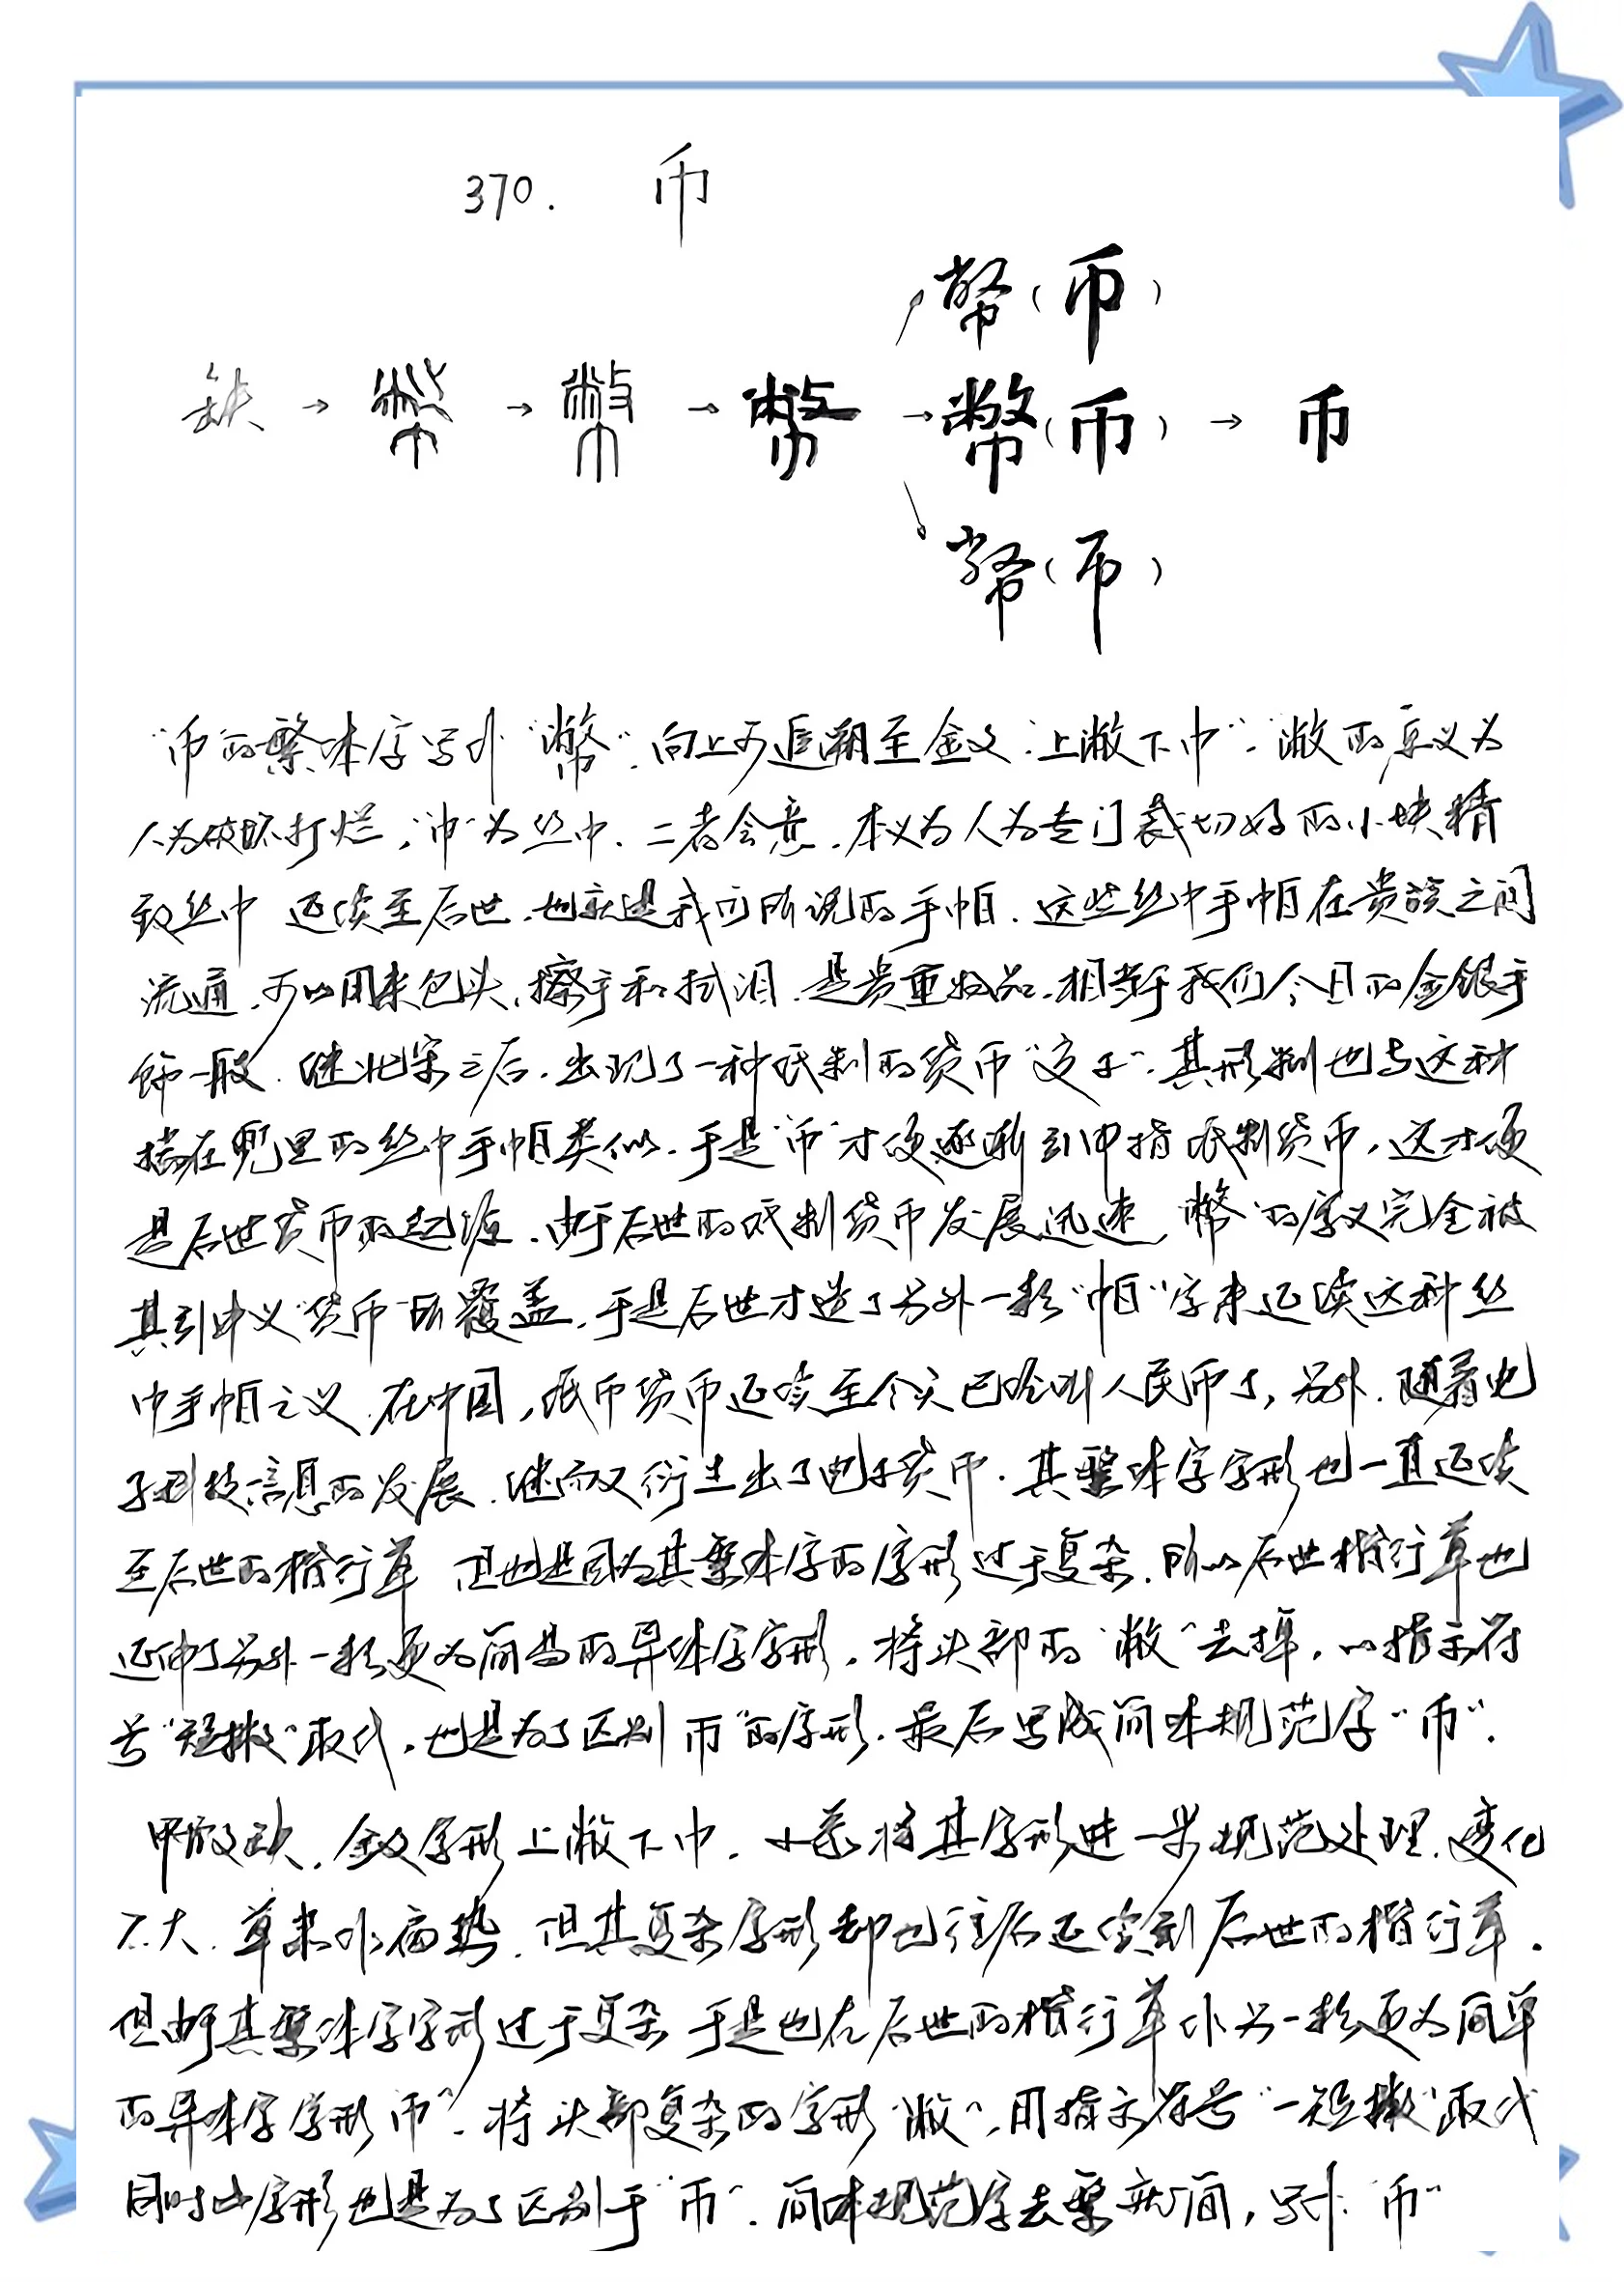 370. 币
幣（币）
缺 → 幣 → 幣 → 幣 → 幣（币） → 币
幣（币）
“币”的繁体字写作“幣”，向上可追溯至金文“上敝下巾”，“敝”的意义为
人为破坏打烂，“巾”为丝巾，二者会意，本义为人为专门裁切好的小块精
致丝巾 延续至后世，也就是我们所说的手帕，这些丝巾手帕在贵族之间
流通，可以用来包头、擦手和拭泪，是贵重物品，相当于我们今日的金银手
饰一般，继北宋之后，出现了一种纸制的货币“交子”，其形制也与这种
揣在兜里的丝巾手帕类似，于是“币”才便逐渐引申指纸制货币，这才便
是后世货币的起源，由于后世的纸制货币发展迅速，“幣”的字义完全被
其引申义“货币”所覆盖，于是后世才造了另外一款“帕”字来延续这种丝
巾手帕之义，在中国，纸币货币延续至今天已经叫人民币了，另外，随着电
子科技信息的发展，继而又衍生出了电子货币，其繁体字字形也一直延续
至后世的楷行草 但也是因为其繁体字的字形过于复杂，所以后世楷行草也
延伸了另外一款更为简易的异体字字形，将头部的“敝”去掉，以指示符
号“短撇”取代，也是为了区别“帀”的字形，最后写成简体规范字“币”.
甲骨文缺，金文字形上敝下巾，小篆将其字形进一步规范处理，变化
不大，草隶作 但其复杂字形却也往后延续到后世的楷行草.
但由于其繁体字字形过于复杂 于是也在后世的楷行草作另一款更为简单
的异体字字形“币”，将头部复杂的字形“敝”，用指示符号“一短撇”取代
同时此字形也是为了区别于“帀”，简体规范字去繁就简，写作“币”